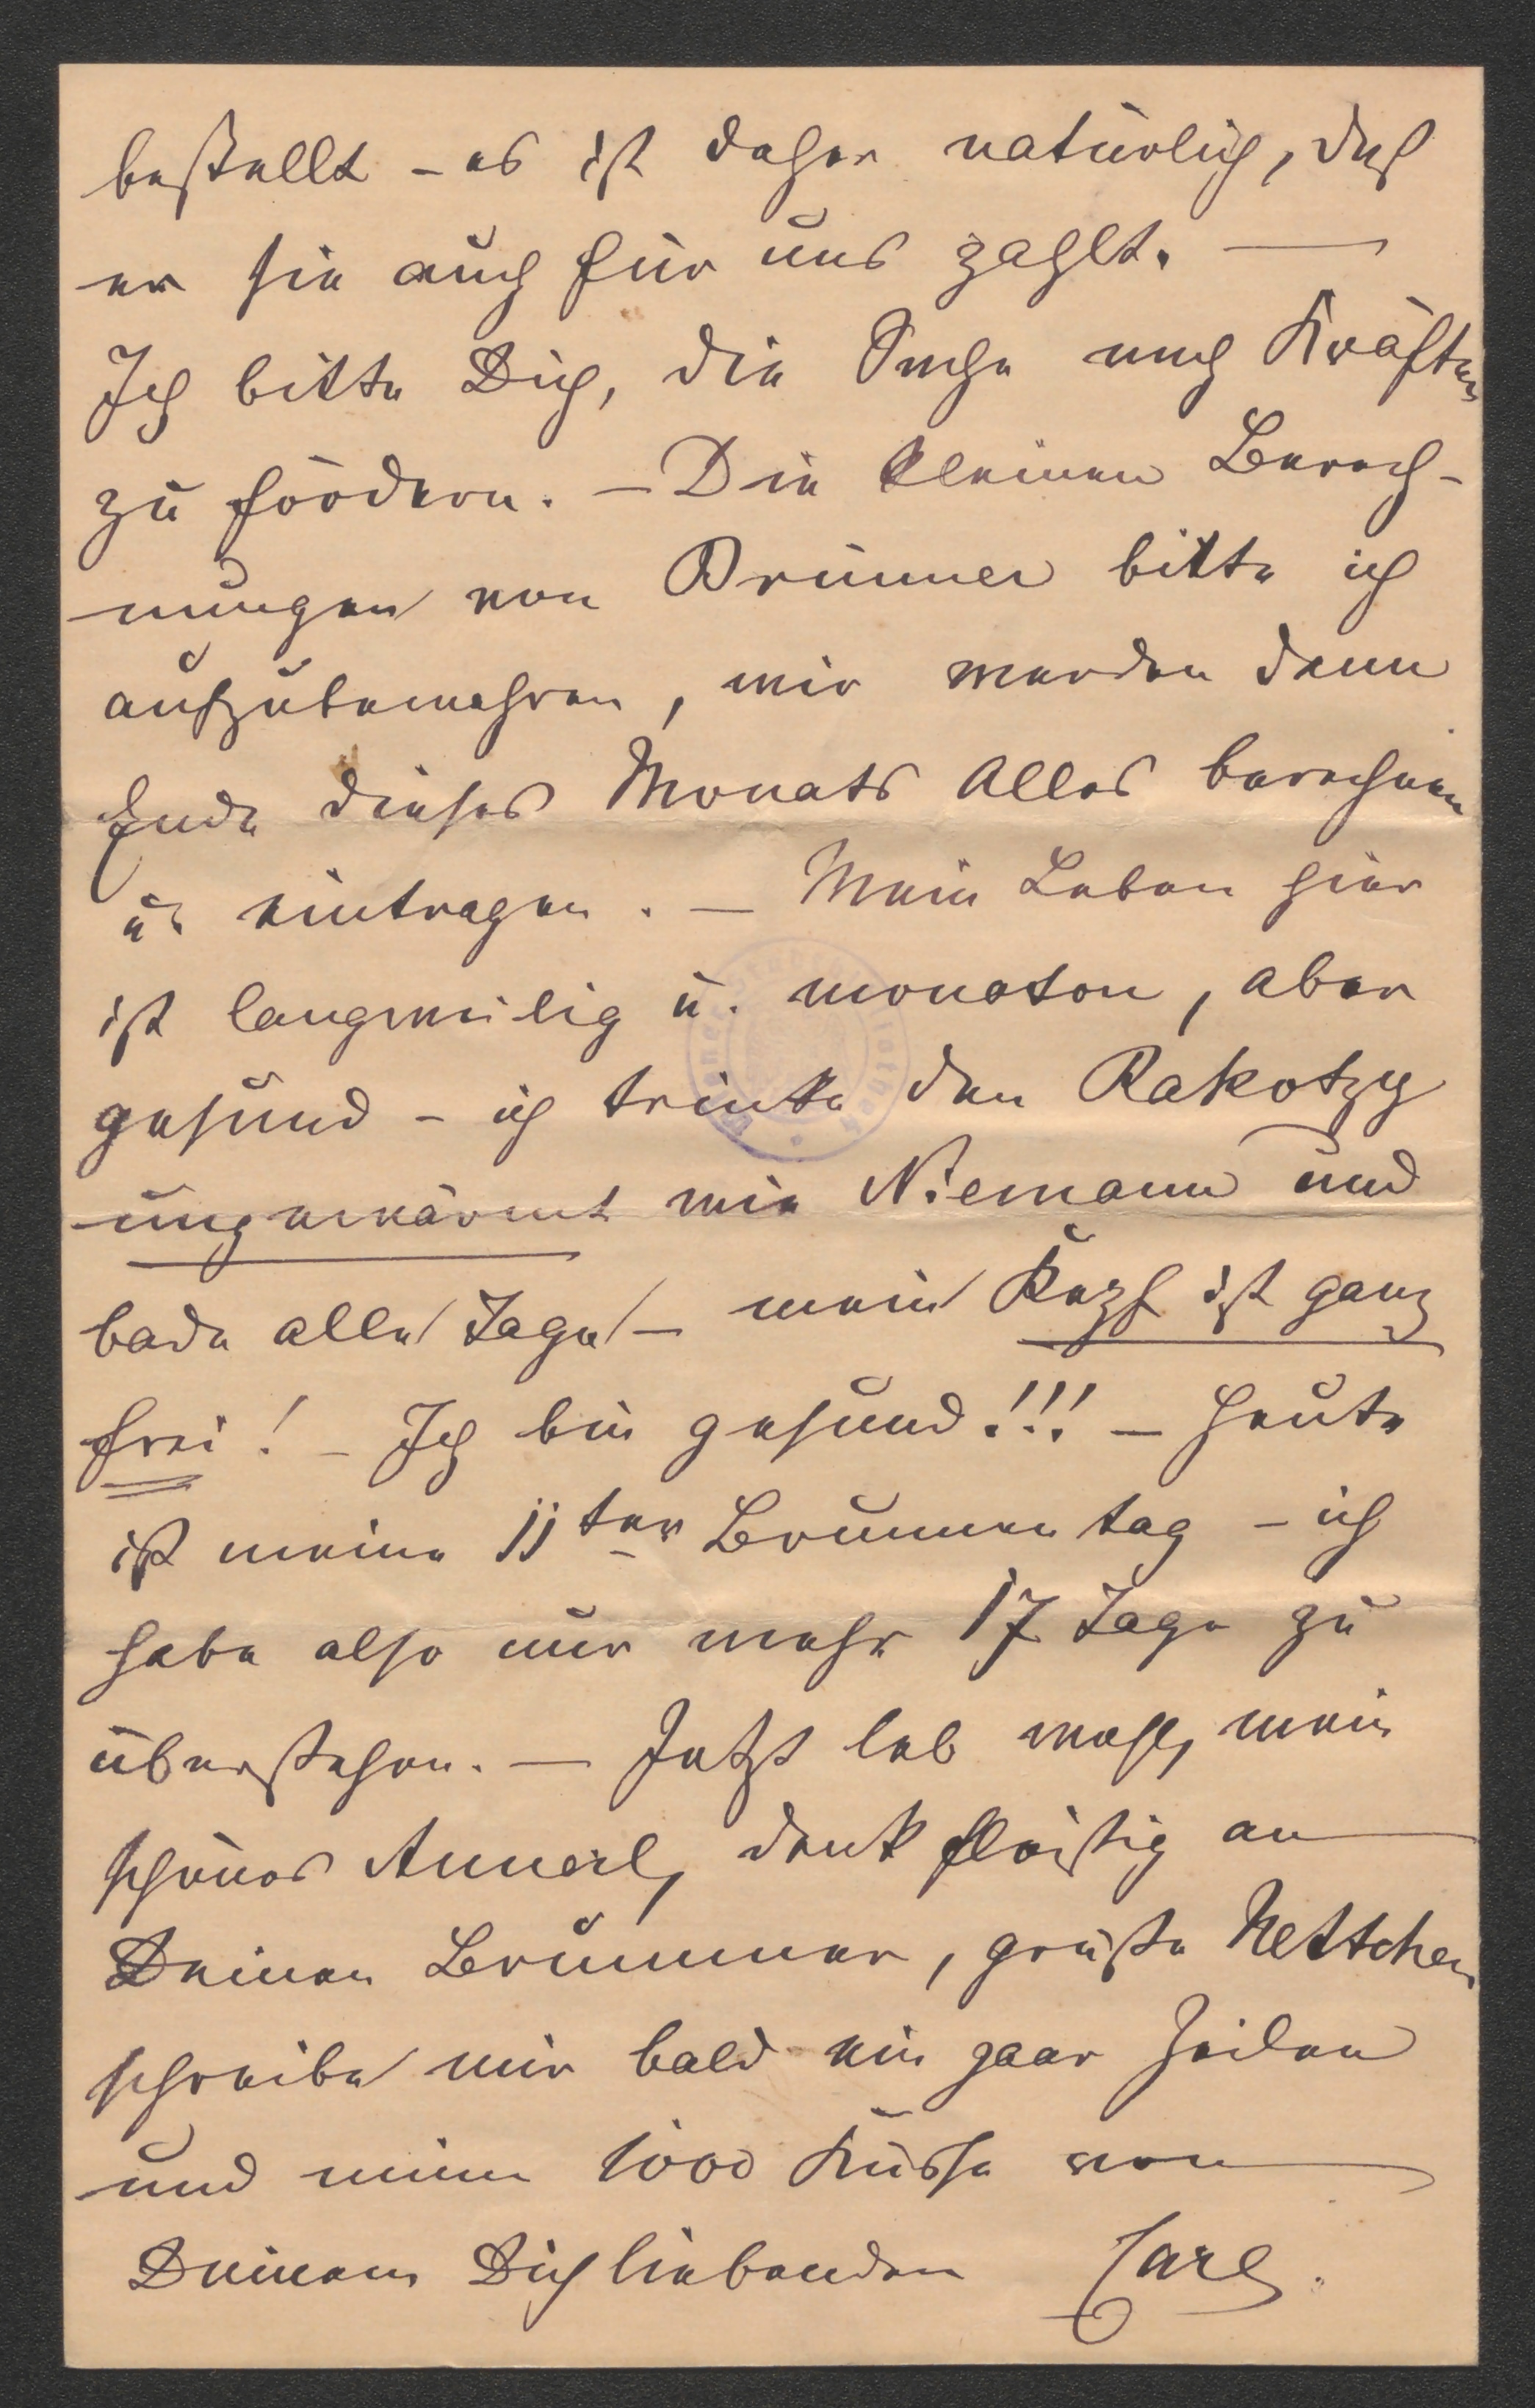 bestellt – es ist daher natürlich, daß
er sie auch für uns zahlt. —
Ich bitte Dich, die Sache nach Kräften
zu fördern. – Die kleinen Berech-
nungen von Brunner bitte ich
aufzubewahren, wir werden dann
Ende dieses Monats Alles berechnen
u. eintragen. — Mein Leben hier
ist langweilig u. monoton, aber
gesund – ich trinke den Rakotzy
ungewärmt wie Niemann und
bade alle Tage – mein Kopf ist ganz
frei! – Ich bin gesund!!! – Heute
ist meine 11ter Brunnentag – ich
habe also nur mehr 17 Tage zu
überstehen. — Jetzt leb wohl, mein
schönes Annerl, denk fleißig an
Deinen Brummer, grüße Nettchen
schreibe mir bald ein paar Zeilen
und nimm 1000 Küsse von
Deinem Dich liebenden Carl.